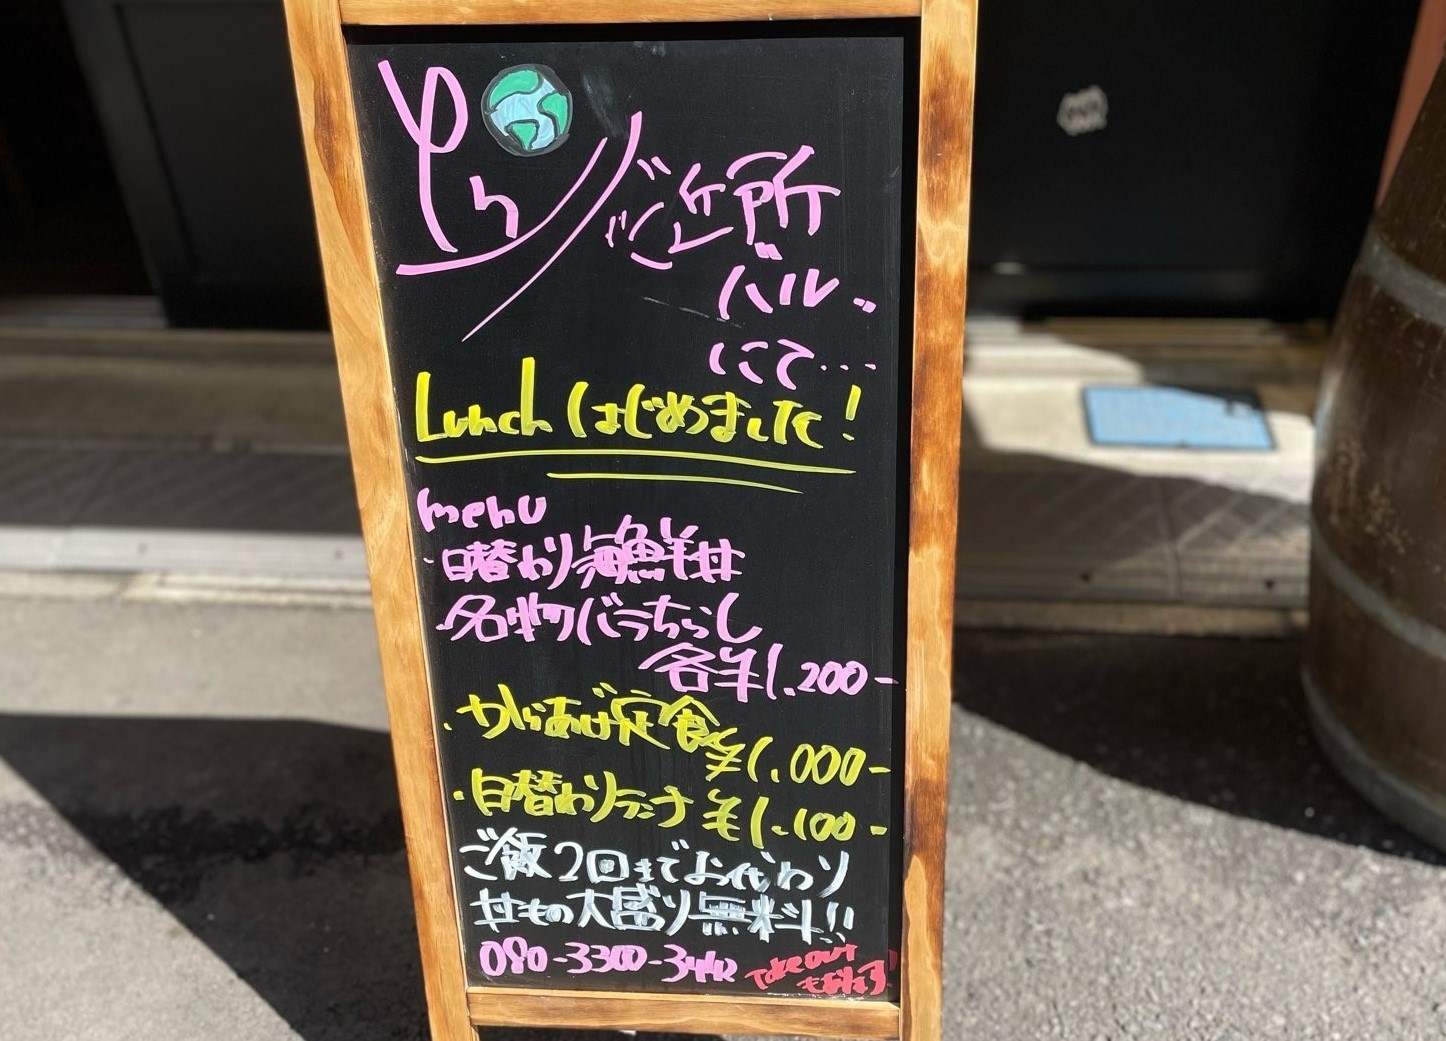 ご近所
バル
にて…
Lunch はじめました!
menu
・日替わり海鮮丼
・名物バラちらし
各¥1.200-
・からあげ定食
¥1.000-
・日替わりランチ ¥1.100-
ご飯2回までお代わり
丼もの大盛り無料!!
080-3300-
Take out
も出来ます